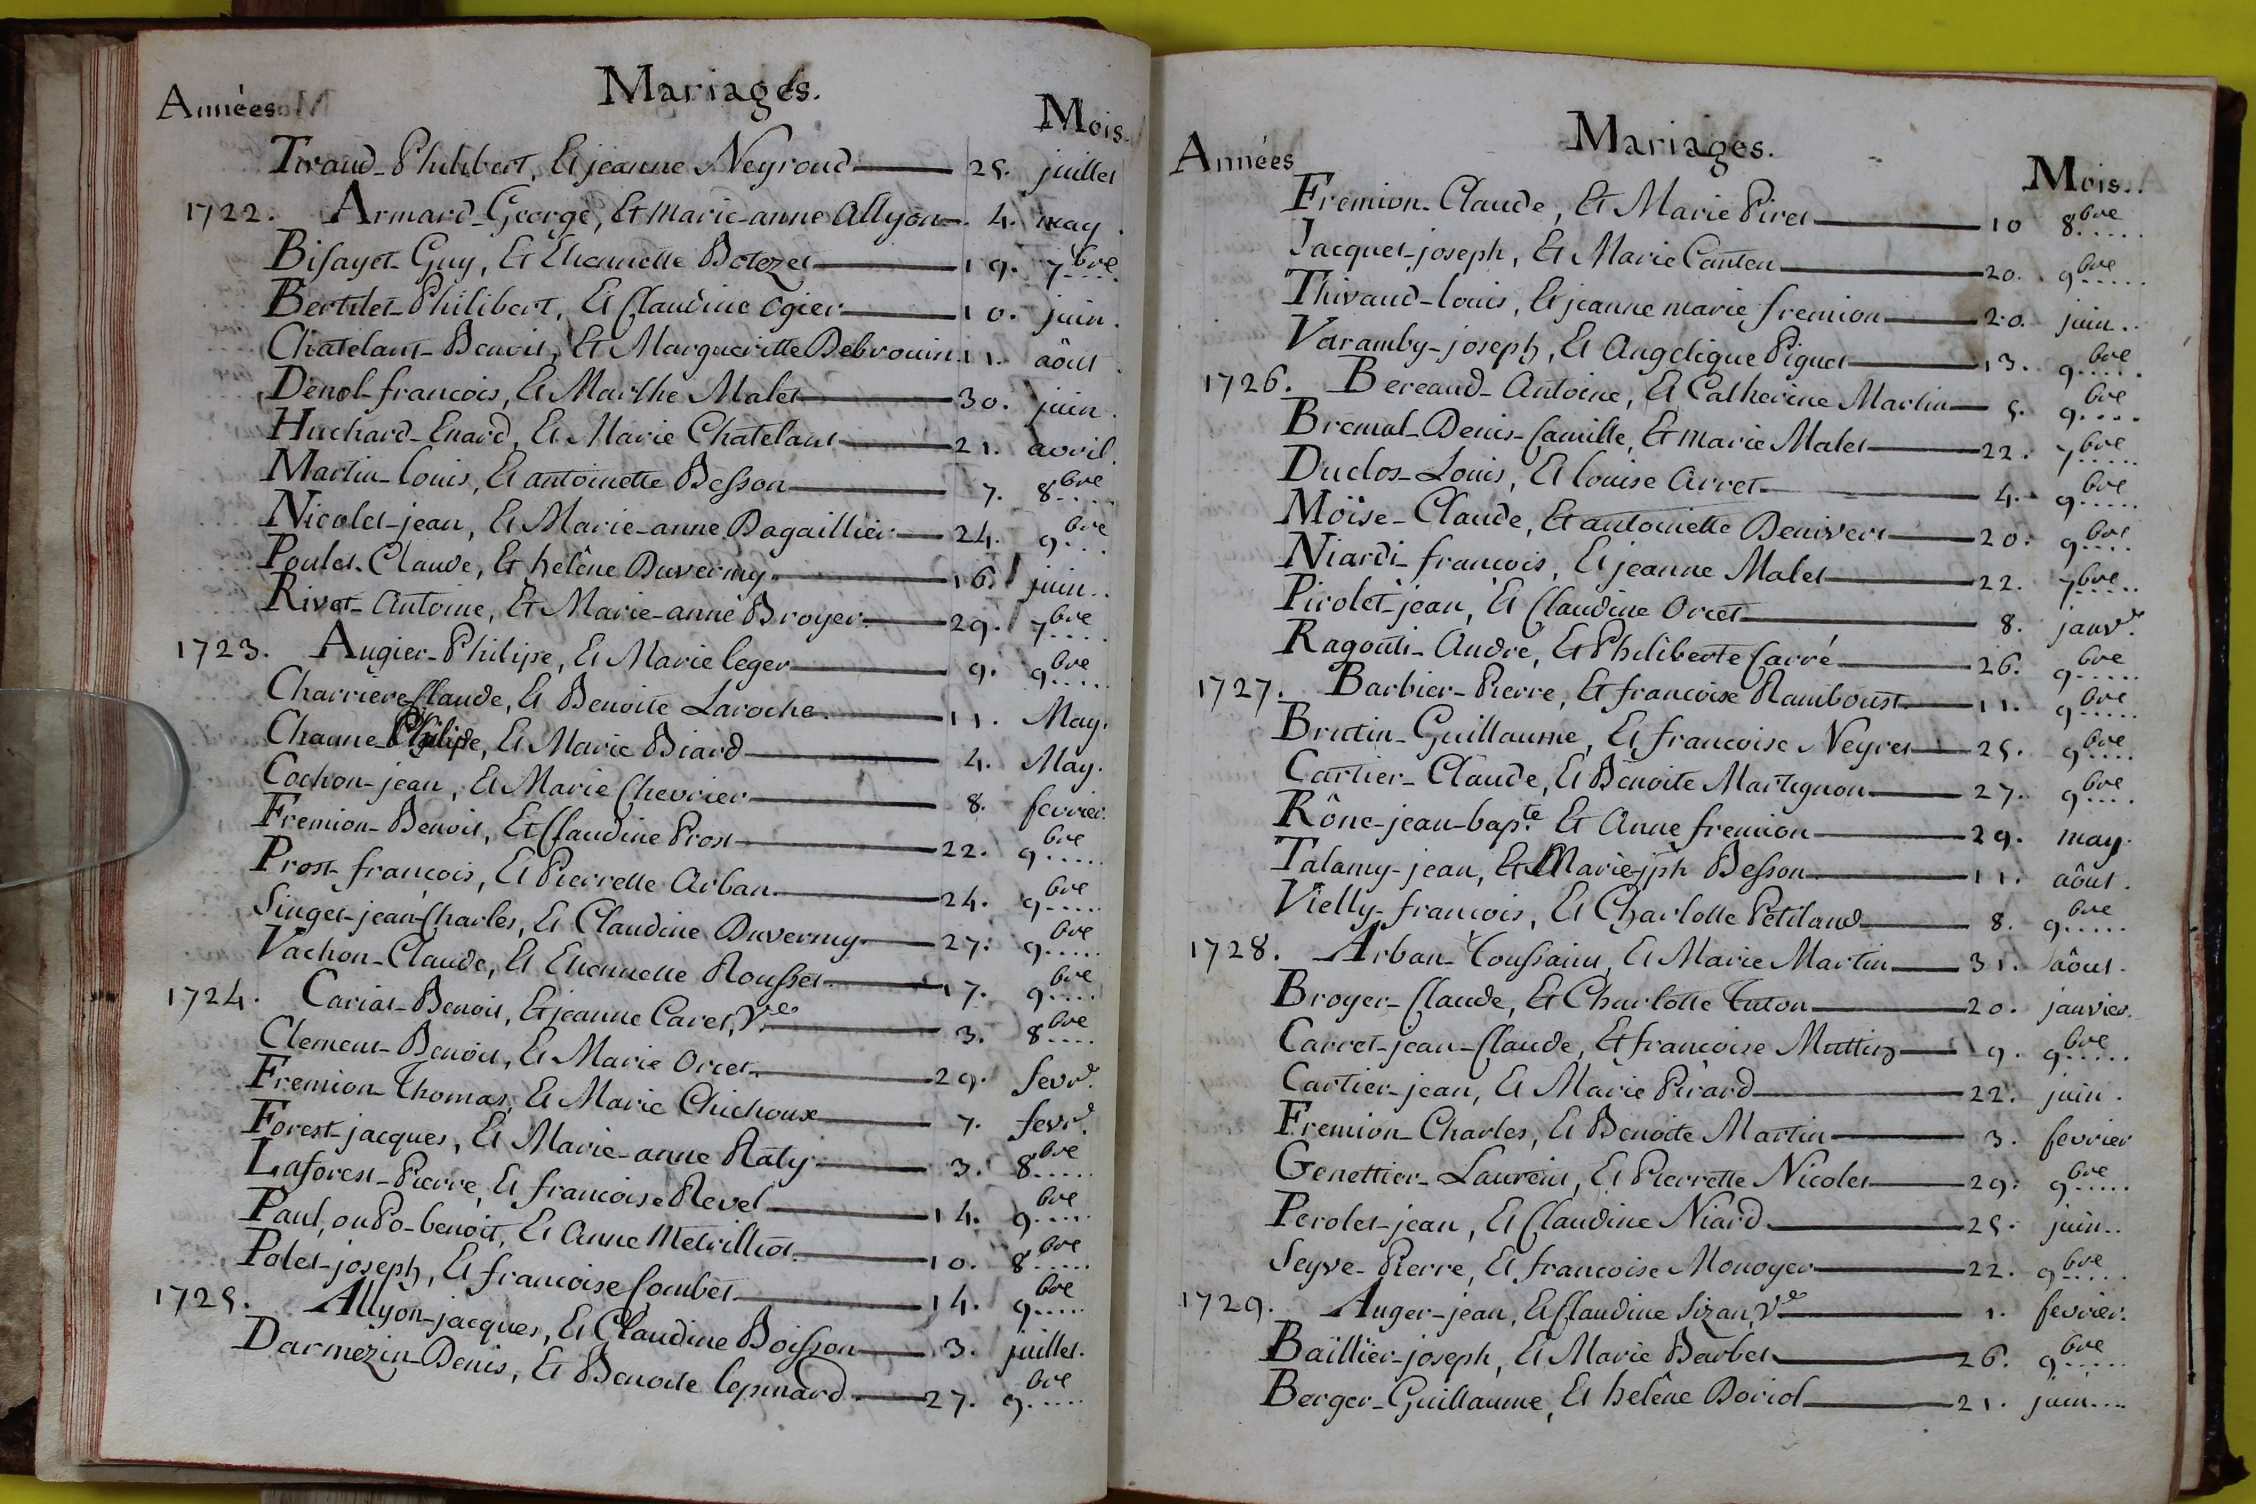 Mariages.
Années Mois.
Tivaud-Philibert, Et jeanne Neyroud 25. juillet
1722. Armard-George, Et Marie-anne Allyon 4. may
Bisayet-Guy, Et Etiennette Botezet 19. 7bre
Bertilet-Philibert, Et Claudine Ogier 10. juin.
Chatelant-Benoit, Et Marguerite Debrouin 11. aôut
Denol-francois, Et Marthe Malet 30. juin.
Huchard-Enard, Et Marie Chatelant 21. avril.
Martin-louis, Et antoinette Besson 7. 8bre
Nicolet-jean, Et Marie-anne Dagaillier 24. 9bre
Poulet-Claude, Et helêne Duvermy 16. juin..
Rivet-Antoine, Et Marie-anne Broyer 29. 7bre
1723. Augier-Philipe, Et Marie leger 9. 9bre
Charriere Claude, Et Benoite Laroche 11. May.
Channe-Philipe, Et Marie Biard 4. May.
Cochon-jean, Et Marie Chevrier 8. fevrier.
Fremion-Benoit, Et Claudine Prost 22. 9bre
Prost-françois, Et Pierrette Arban 24. 9bre
Singet-jean-Charles, Et Claudine Duvermy 27. 9bre
Vachon-Claude, Et Etiennette Rousset 17. 9bre
1724. Cariat-Benoit, Et jeanne Caret, Vve 3. 8bre
Clement-Benoit, Et Marie Orcet 29. fevr.
Fremion-Thomas, Et Marie Chichoux 7. fevr.
Forest-jacques, Et Marie-anne Raty 3. 8bre
Laforest-Pierre, Et francoise Revel 14. 9bre
Paul, ou Po-benoit, Et Anne Metrilliot 10. 8bre
Polet-joseph, Et francoise Combet 14. 9bre
1725. Allyon-jacques, Et Claudine Boisson 3. juillet.
Darmezin-Denis, Et Benoite lepinard 27. 9bre
Mariages.
Années Mois..
Fremion-Claude, Et Marie Piret 10 8bre
Jacquet-joseph, Et Marie Canten 20. 9bre
Thivaud-louis, Et jeanne marie fremion 20. juin..
Varamby-joseph, Et Angelique Piquet 13. 9bre
1726. Bereaud-Antoine, Et Catherine Martin 5. 9bre
Bremal-Denis-Camille, Et Marie Malet 22. 7bre
Duclos-Louis, Et louise Arret 4. 9bre
Möise-Claude, Et antoinette Denivert 20. 9bre
Niardi-francois, Et jeanne Malet 22. 7bre
Pirolet-jean, Et Claudine Orcet 8. janv.
Ragouti-André, Et Philiberte Carré 26. 9bre
1727. Barbier-Pierre, Et francoise Ramboust 11. 9bre
Brutin-Guillaume, Et francoise Neyret 25. 9bre
Cartier-Claude, Et Benoite Martignon 27. 9bre
Rône-jean-bapte. Et Anne fremion 29. may.
Talamy-jean, Et Marie-jph Besson 11. aôut.
Vielly-francois, Et Charlotte Petitaud 8. 9bre
1728. Arban-Toussaint, Et Marie Martin 31. aôut.
Broyer-Claude, Et Charlotte Tuton 20. janvier.
Carret-jean-Claude, Et francoise Muttin 9. 9bre
Cartier-jean, Et Marie Pirard 22. juin.
Fremion-Charles, Et Benoite Martin 3. fevrier
Genettier-Laurent, Et Pierrette Nicolet 29. 9bre
Perolet-jean, Et Claudine Niard 25. juin..
Seyve-Pierre, Et francoise Monoyer 22. 9bre
1729. Auger-jean, Et Claudine Sizan, Ve 1. fevrier.
Baïllier-joseph, Et Marie Barbet 26. 9bre
Berger-Guillaume, Et helêne Doriol 21. juin....